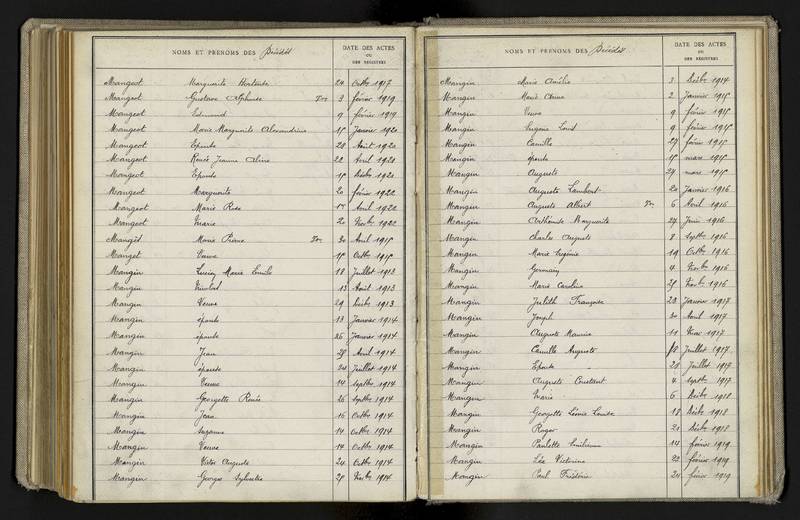 NOMS ET PRENOMS DES Décédés
DATE DES ACTES
OU
DES REGISTRES
Mangeot Marguerite Hortense 24 Octbr 1917
Mangeot Gustave Alphonse Tr. 3 février 1919
Mangeot Edmond 9 février 1919
Mangeot Marie Marguerite Alexandrine 15 Janvier 1920
Mangeot Epouse 28 Août 1920
Mangeot Renée Jeanne Aline 22 Avril 1920
Mangeot Epouse 15 Décbr 1920
Mangeot Marguerite 20 février 1922
Mangeot Marie Rose 15 Avril 1922
Mangeot Marie 20 Novbr 1922
Mangêt Marie Tr. 30 Avril 1915
Manget Veuve 15 Octbr 1915
Mangin Lucien Marie Emile 18 Juillet 1913
Mangin 13 Août 1913
Mangin Veuve 29 Décbr 1913
Mangin épouse 13 Janvier 1914
Mangin épouse 26 Janvier 1914
Mangin Jean 28 Avril 1914
Mangin épouse 24 Juillet 1914
Mangin Veuve 14 Septbr 1914
Mangin Georgette Renée 26 Septbr 1914
Mangin Jean 16 Octbr 1914
Mangin Suzanne 14 Octbr 1914
Mangin Veuve 14 Octbr 1914
Mangin Victor Auguste 24 Octbr 1914
Mangin Georges Sylvestre 28 Novbr 1914
NOMS ET PRENOMS DES Décédés
DATE DES ACTES
OU
DES REGISTRES
Mangin Marie Amélie 3 Décbr 1914
Mangin Marie Anna 2 Janvier 1915
Mangin Veuve 9 février 1915
Mangin Eugène Louis 9 février 1915
Mangin Camille 27 février 1915
Mangin épouse 15 mars 1915
Mangin Auguste 24 mars 1915
Mangin Auguste Lambert 20 Janvier 1916
Mangin Auguste Albert Tr. 6 Avril 1916
Mangin Marguerite 27 Juin 1916
Mangin Charles Auguste 8 Septbr 1916
Mangin Marie Eugénie 19 Octbr 1916
Mangin Germain 4 Novbr 1916
Mangin Marie Caroline 28 Novbr 1916
Mangin Judith Françoise 23 Janvier 1917
Mangin Joseph 30 Avril 1917
Mangin Auguste Maurice 11 1917
Mangin Camille Auguste 18 Juillet 1917
Mangin Epouse 28 Juillet 1917
Mangin Auguste Constant 4 Septbr 1917
Mangin Marie 6 Décbr 1918
Mangin Georgette Léonie Louise 18 Décbr 1918
Mangin Roger 21 Décbr 1918
Mangin Paulette Emilienne 14 février 1919
Mangin Léa Victorine 22 février 1919
Mangin Paul Frédéric 24 février 1919